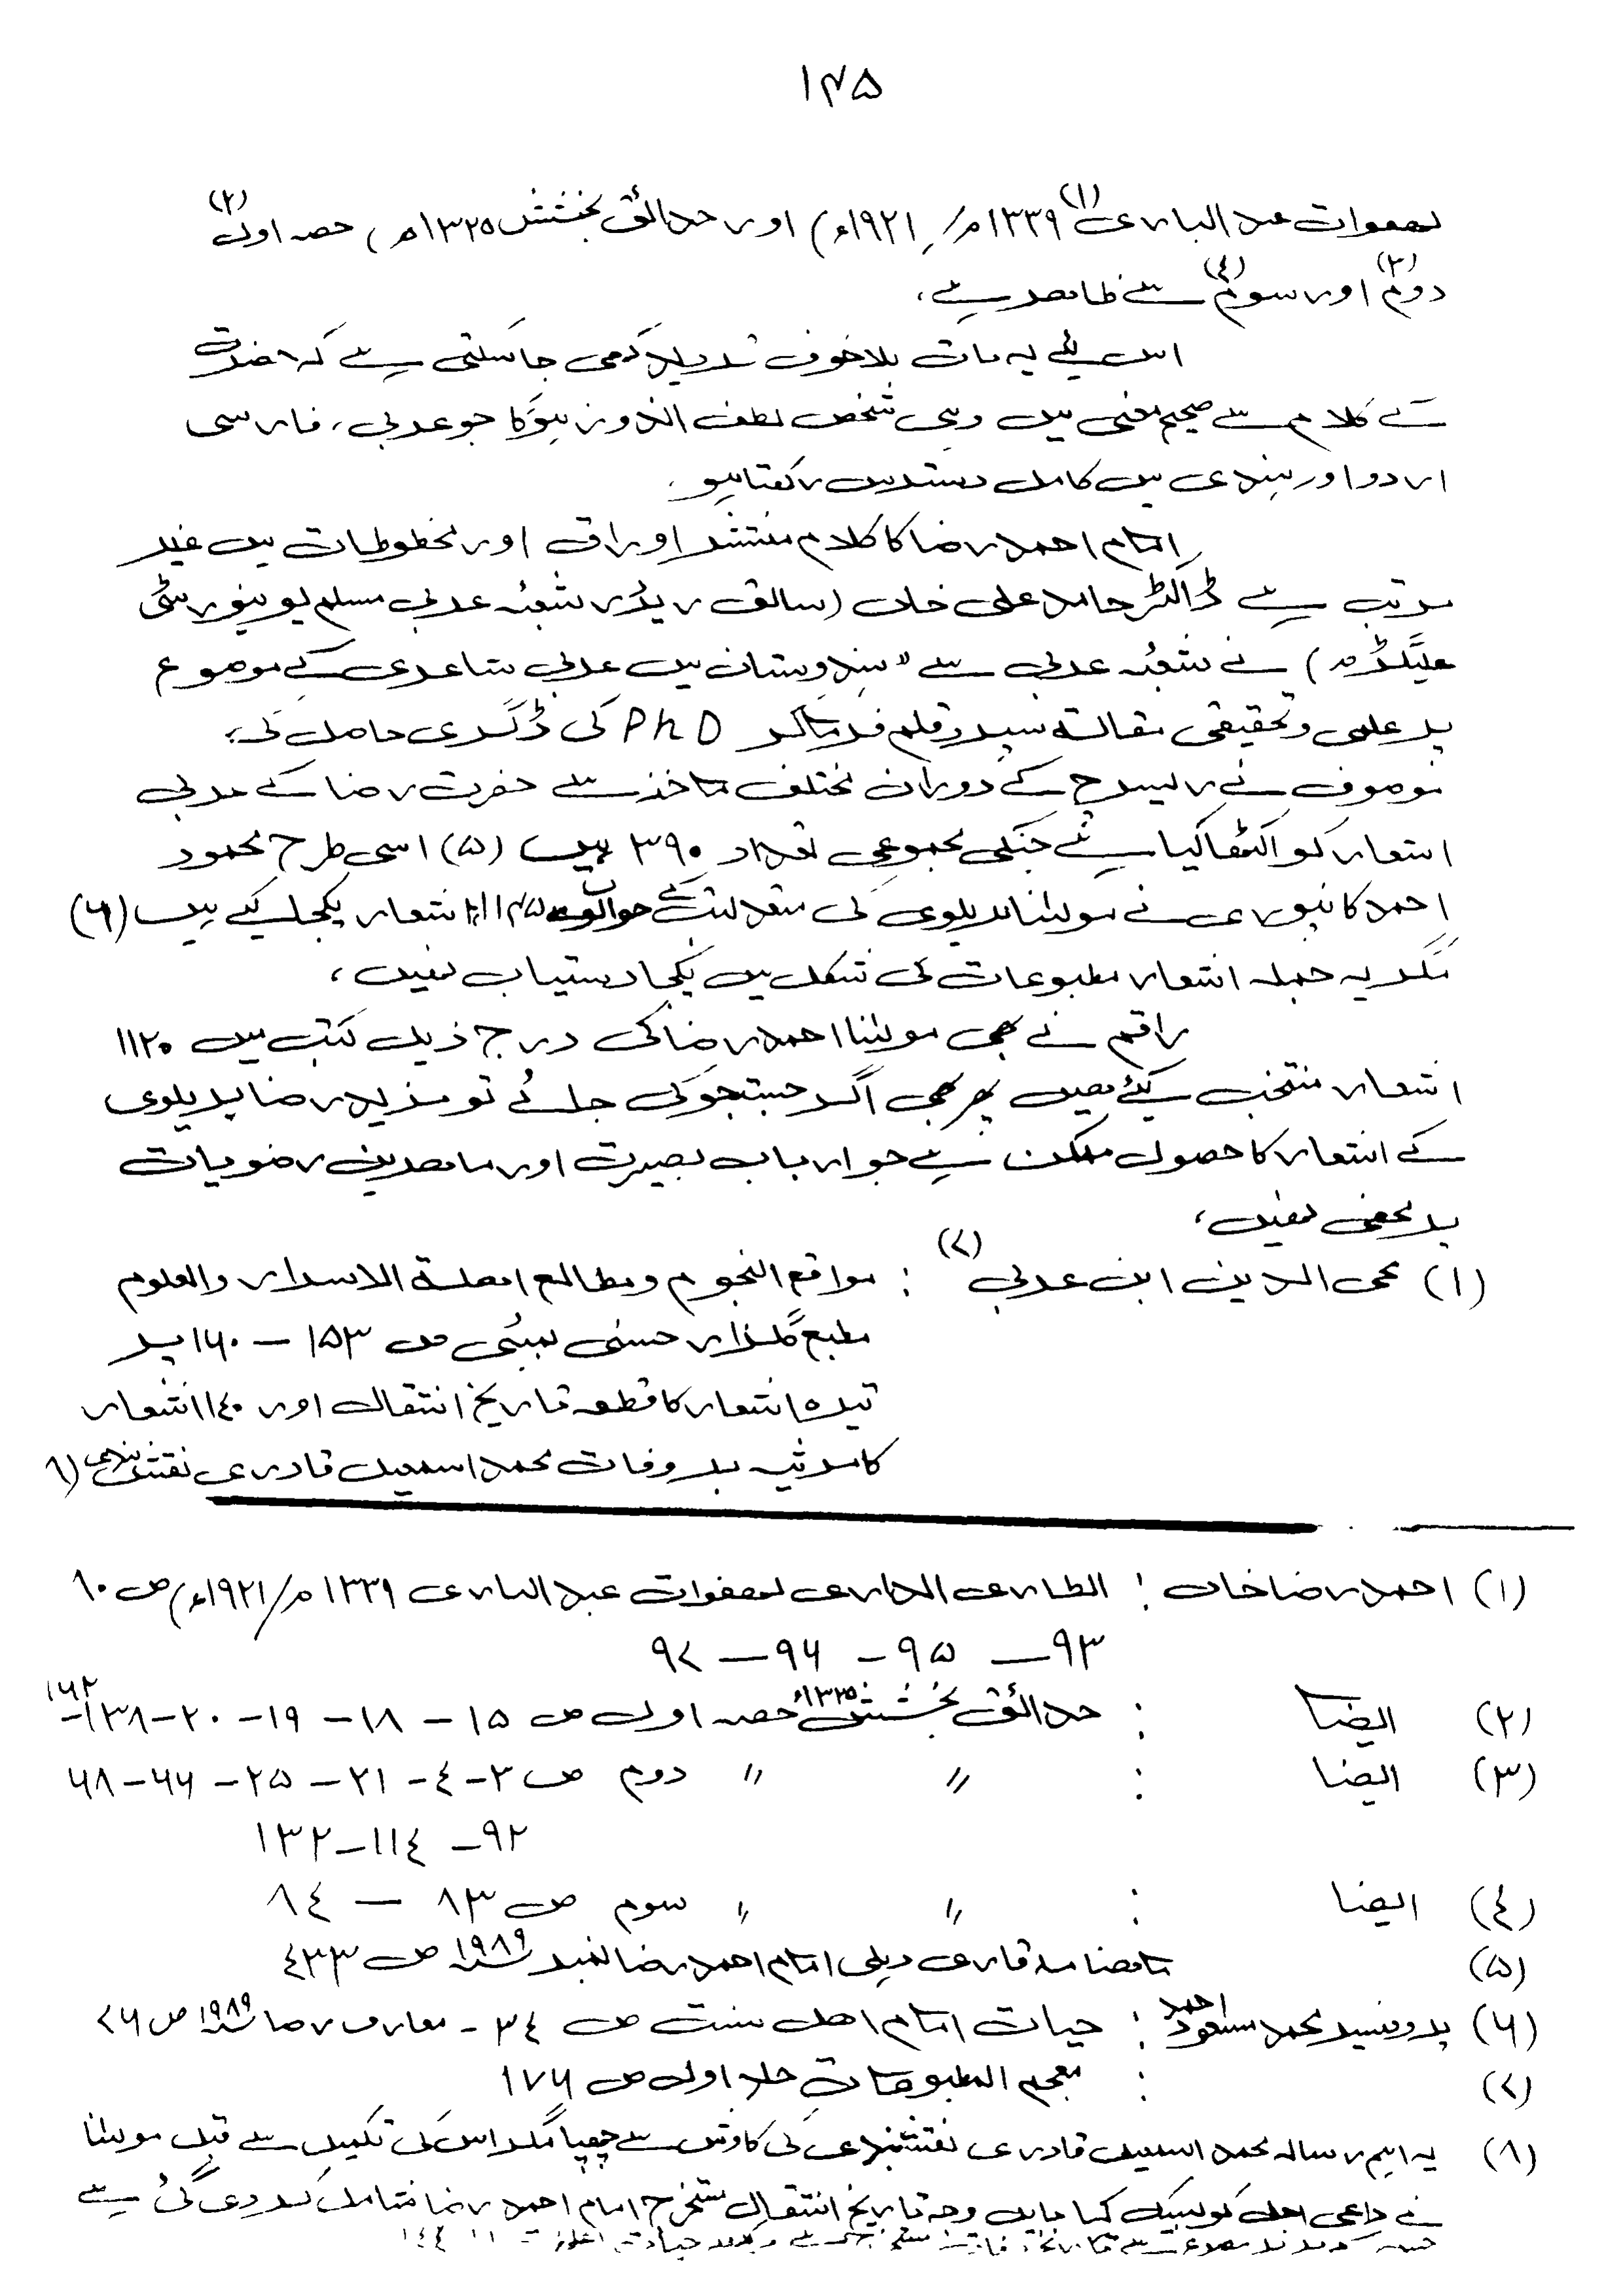 ۱۴۵
لھفوات عبد الباری (۱) ۱۳۳۹ھ/ ۱۹۲۱ء) اور حدائق بخشش ۱۳۲۵ھ، حصہ اول (۲)
دوم (۳) اور سوم (۴) سے ظاھر ہے،
اس لئے یہ بات بلا خوف تردید کہی جاسکتی ہے کہ حضرت
کے کلام سے صحیح معنی میں وہی شخص لطف اندوز ہوگا جو عربی، فارسی
اردو اور ہندی میں کامل دسترس رکھتا ہو۔
امام احمد رضا کا کلام منتشر اوراق اور مخطوطات میں غیر
مرتب ہے ڈاکٹر حامد علی خاں (سابق ریڈر شعبۂ عربی مسلم یونیورسٹی
علیگڑھ) نے شعبۂ عربی سے "ہندوستان میں عربی شاعری کے موضوع
پر علمی و تحقیقی مقالہ سپرد قلم فرماکر PhD کی ڈگری حاصل کی،
موصوف نے ریسرچ کے دوران مختلف مآخذ سے حضرت رضا کے عربی
اشعار کو اکٹھا کیا ہے جنکی مجموعی تعداد ۳۹۰ ہیں (۵) اسی طرح محمود
احمد کانپوری نے مولٰنا بریلوی کی متعدد کتب کے حوالوں سے ۱۱۴۵ اشعار یکجا کیے ہیں (۶)
مگر یہ جملہ اشعار مطبوعات کی شکل میں یکجا دستیاب نھیں،
راقم نے بھی مولٰنا احمد رضا کی درج ذیل کتب میں ۱۱۲۰
اشعار منتخب کئے ھیں پھر بھی اگر جستجو کی جائے تو مزید رضا بریلوی
کے اشعار کا حصول ممکن ہے جو ارباب بصیرت اور ماھرین رضویات
پر مخفی نھیں،
(۱) محی الدین ابن عربی (۷) : مواقع النجوم ومطالع اھلۃ الاسرار والعلوم
مطبع گلزار حسنی بمبئی ص ۱۵۳ – ۱۶۰ پر
تیرہ اشعار کا قطعہ تاریخ انتقال اور ۱۴۰ اشعار
کا مرثیہ بر وفات محمد اسمعیل قادری نقشبندی (۸
(۱) احمد رضا خاں : الطاری الداری لھفوات عبد الباری ۱۳۳۹ھ/۱۹۲۱ء) ص ۹۰
۹۳ – ۹۵ – ۹۶ – ۹۷
(۲) ایضا : حدائق بخشش ۱۳۲۵ھ حصہ اول ص ۱۵ – ۱۸ – ۱۹ – ۲۰ – ۱۳۸ – ۱۶۲
(۳) ایضا : " " دوم ص ۲ – ۴ – ۲۱ – ۲۵ – ۶۶ – ۶۸
۹۲ – ۱۱۴ – ۱۳۲
(۴) ایضا : " " سوم ص ۸۳ – ۸۴
(۵) ماھنامہ قاری دہلی امام احمد رضا نمبر ۱۹۸۹ ص ۴۳۳
(۶) پروفیسر محمد مسعود احمد : حیات امام اھل سنت ص ۳۴ - معارف رضا ۱۹۸۹ ص ۷۶
(۷) : معجم المطبوعات جلد اول ص ۱۷۶
(۸) یہ اہم رسالہ محمد اسمعیل قادری نقشبندی کی کاوش سے چھپا مگر اس کی تکمیل سے قبل مولٰنا
نے داعی اجل کو لبیک کہا بایں وجہ تاریخ انتقال مستخرج امام احمد رضا شامل کر دی گئی ہے